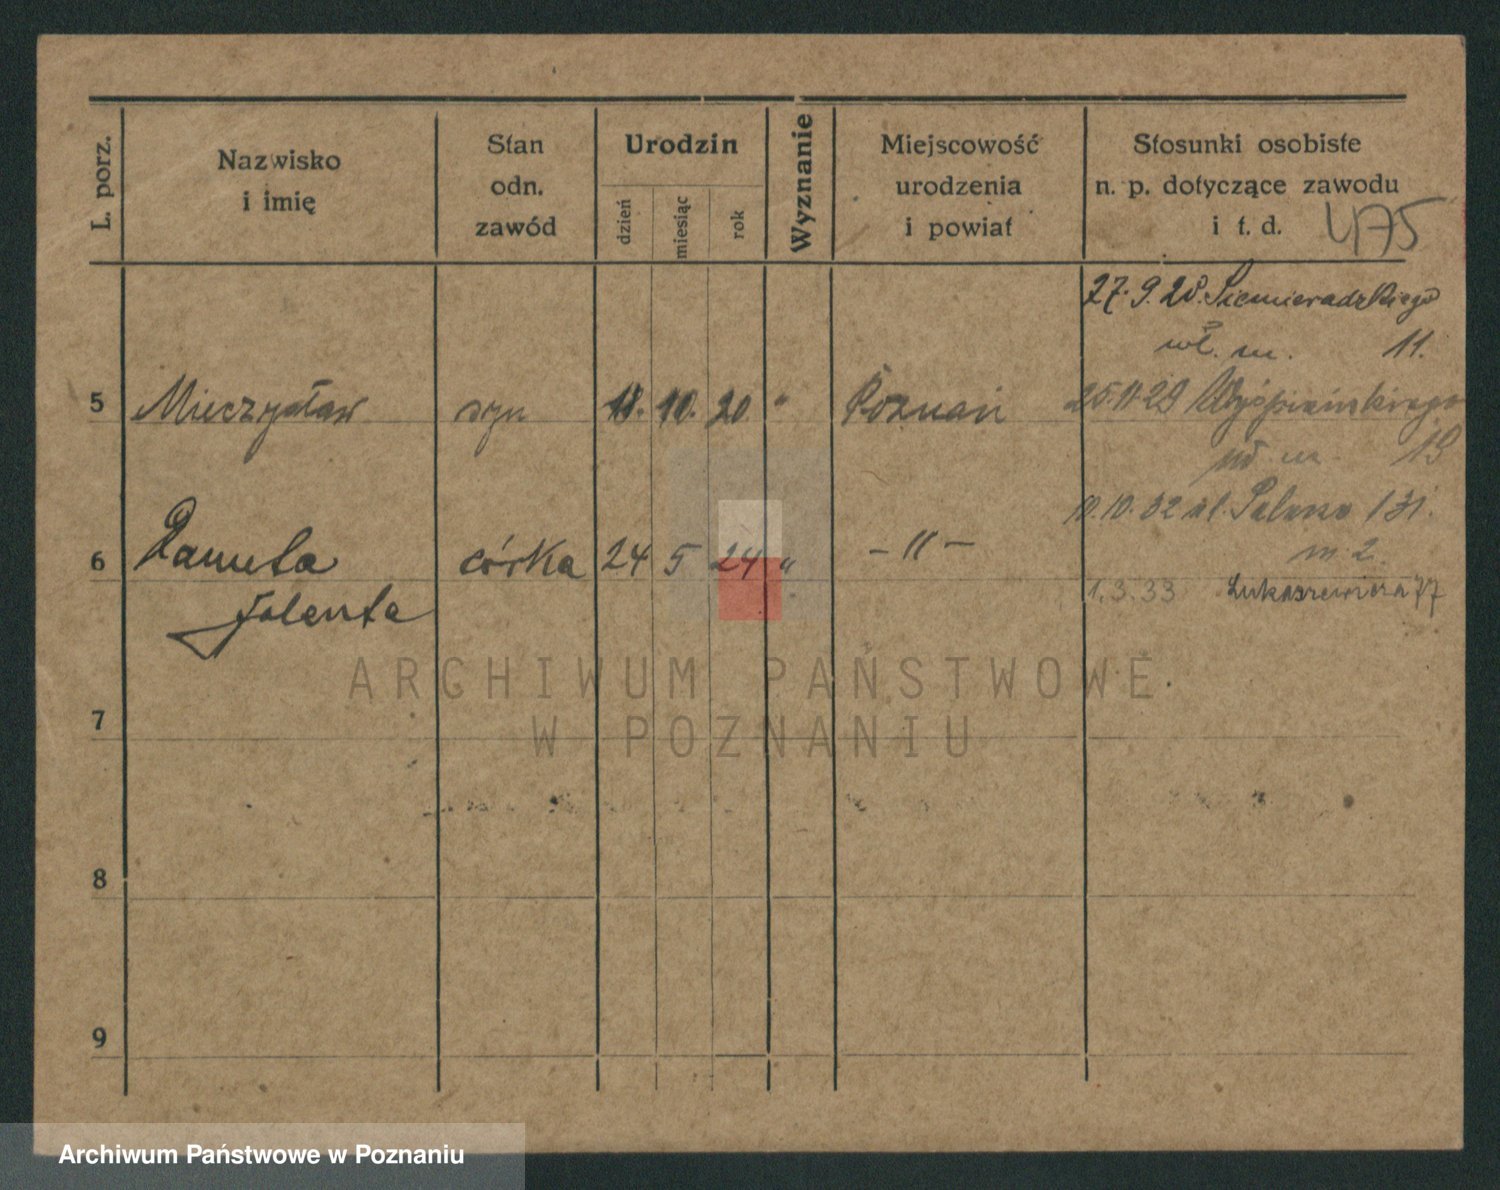 L. porz.
Nazwisko
i imię
Stan
odn.
zawód
Urodzin
dzień
miesiąc
rok
Wyznanie
Miejscowość
urodzenia
i powiat
Stosunki osobiste
n. p. dotyczące zawodu
i t. d. 475
27. 9. 28. Siemieradzkiego
wł. m. 11.
5 Mieczysław syn 10. 20 " Poznań 25.11.29 Wyśpiańskiego
m. 19
6 Danuta córka 24 5 24 " - " - 10.10.32 131.
m. 2.
Jolenta
1.3.33 Łukaszewicza 77
ARCHIWUM PAŃSTWOWE
W POZNANIU
7
8
9
Archiwum Państwowe w Poznaniu